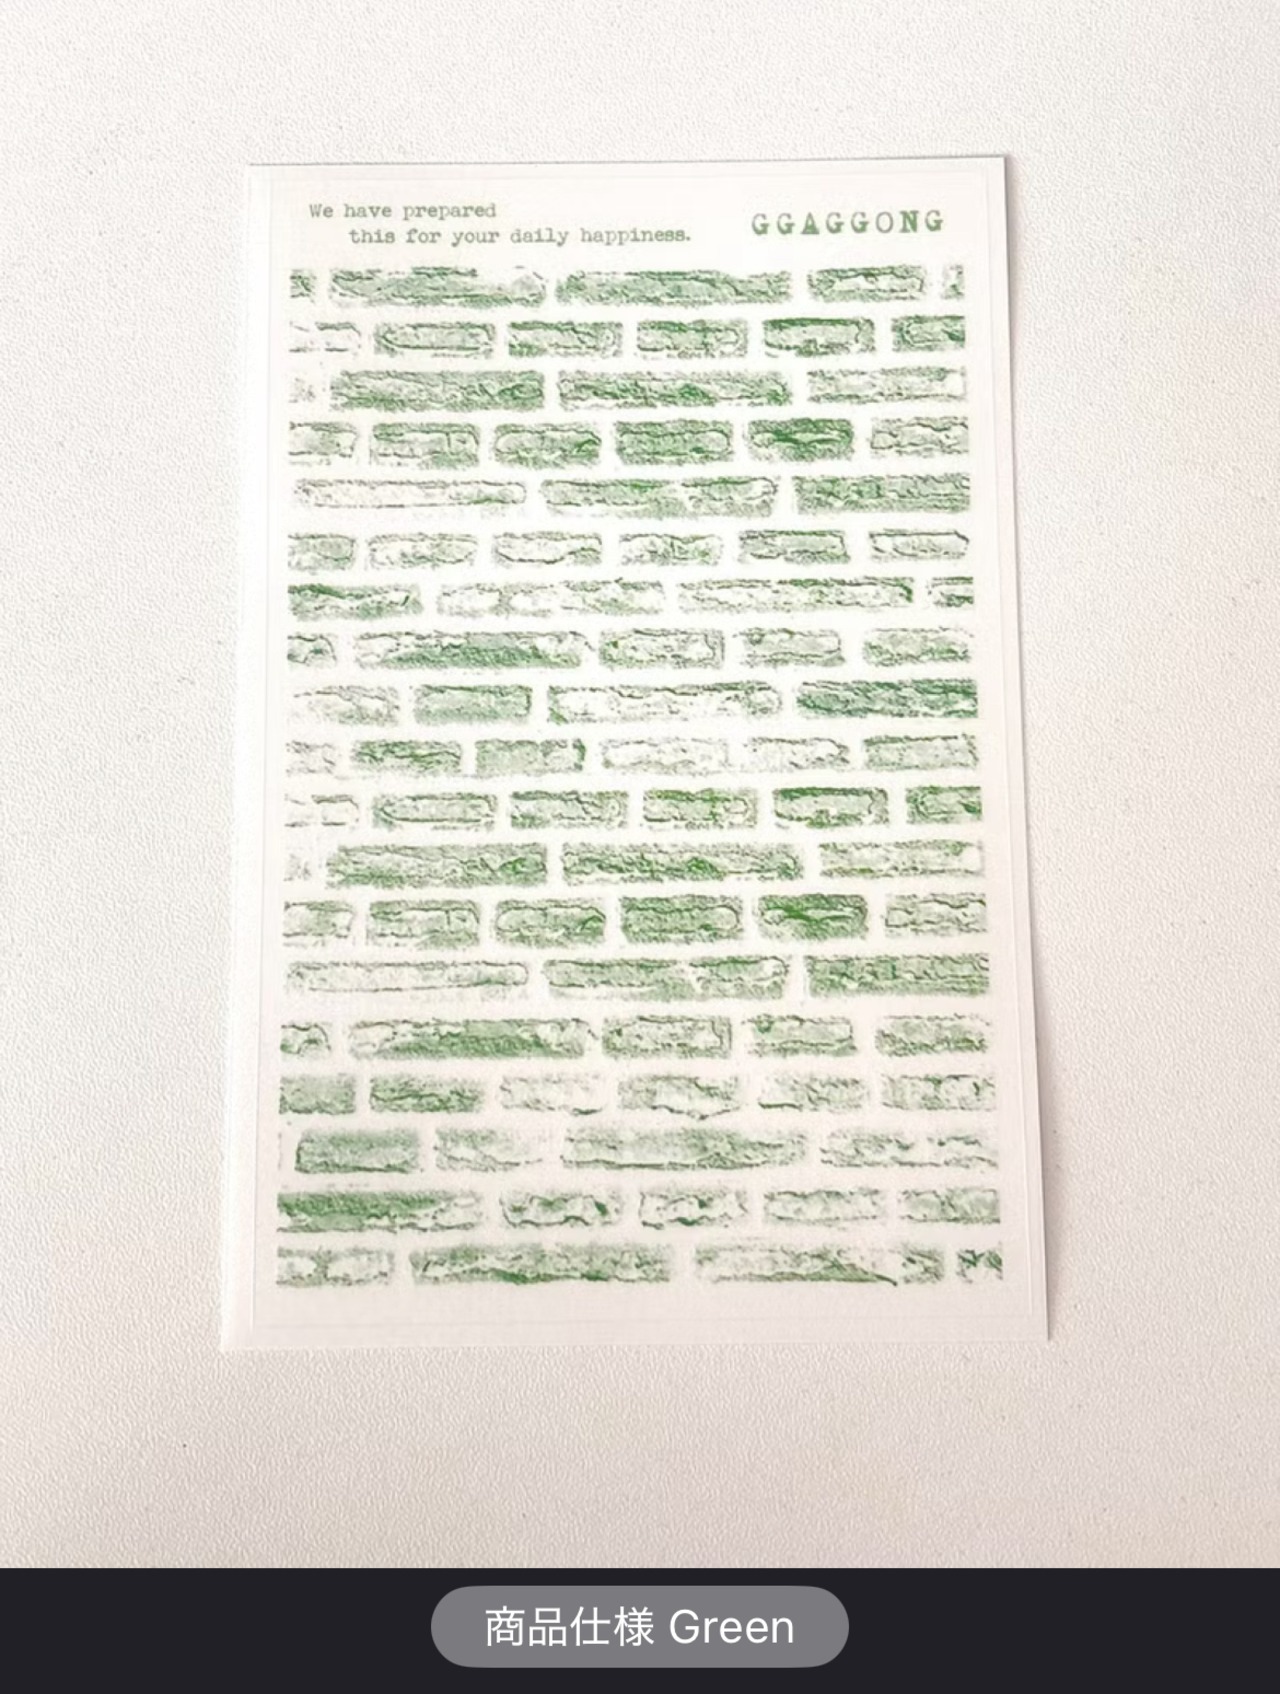 We have prepared
this for your daily happiness.
GGAGGONG
商品仕様 Green